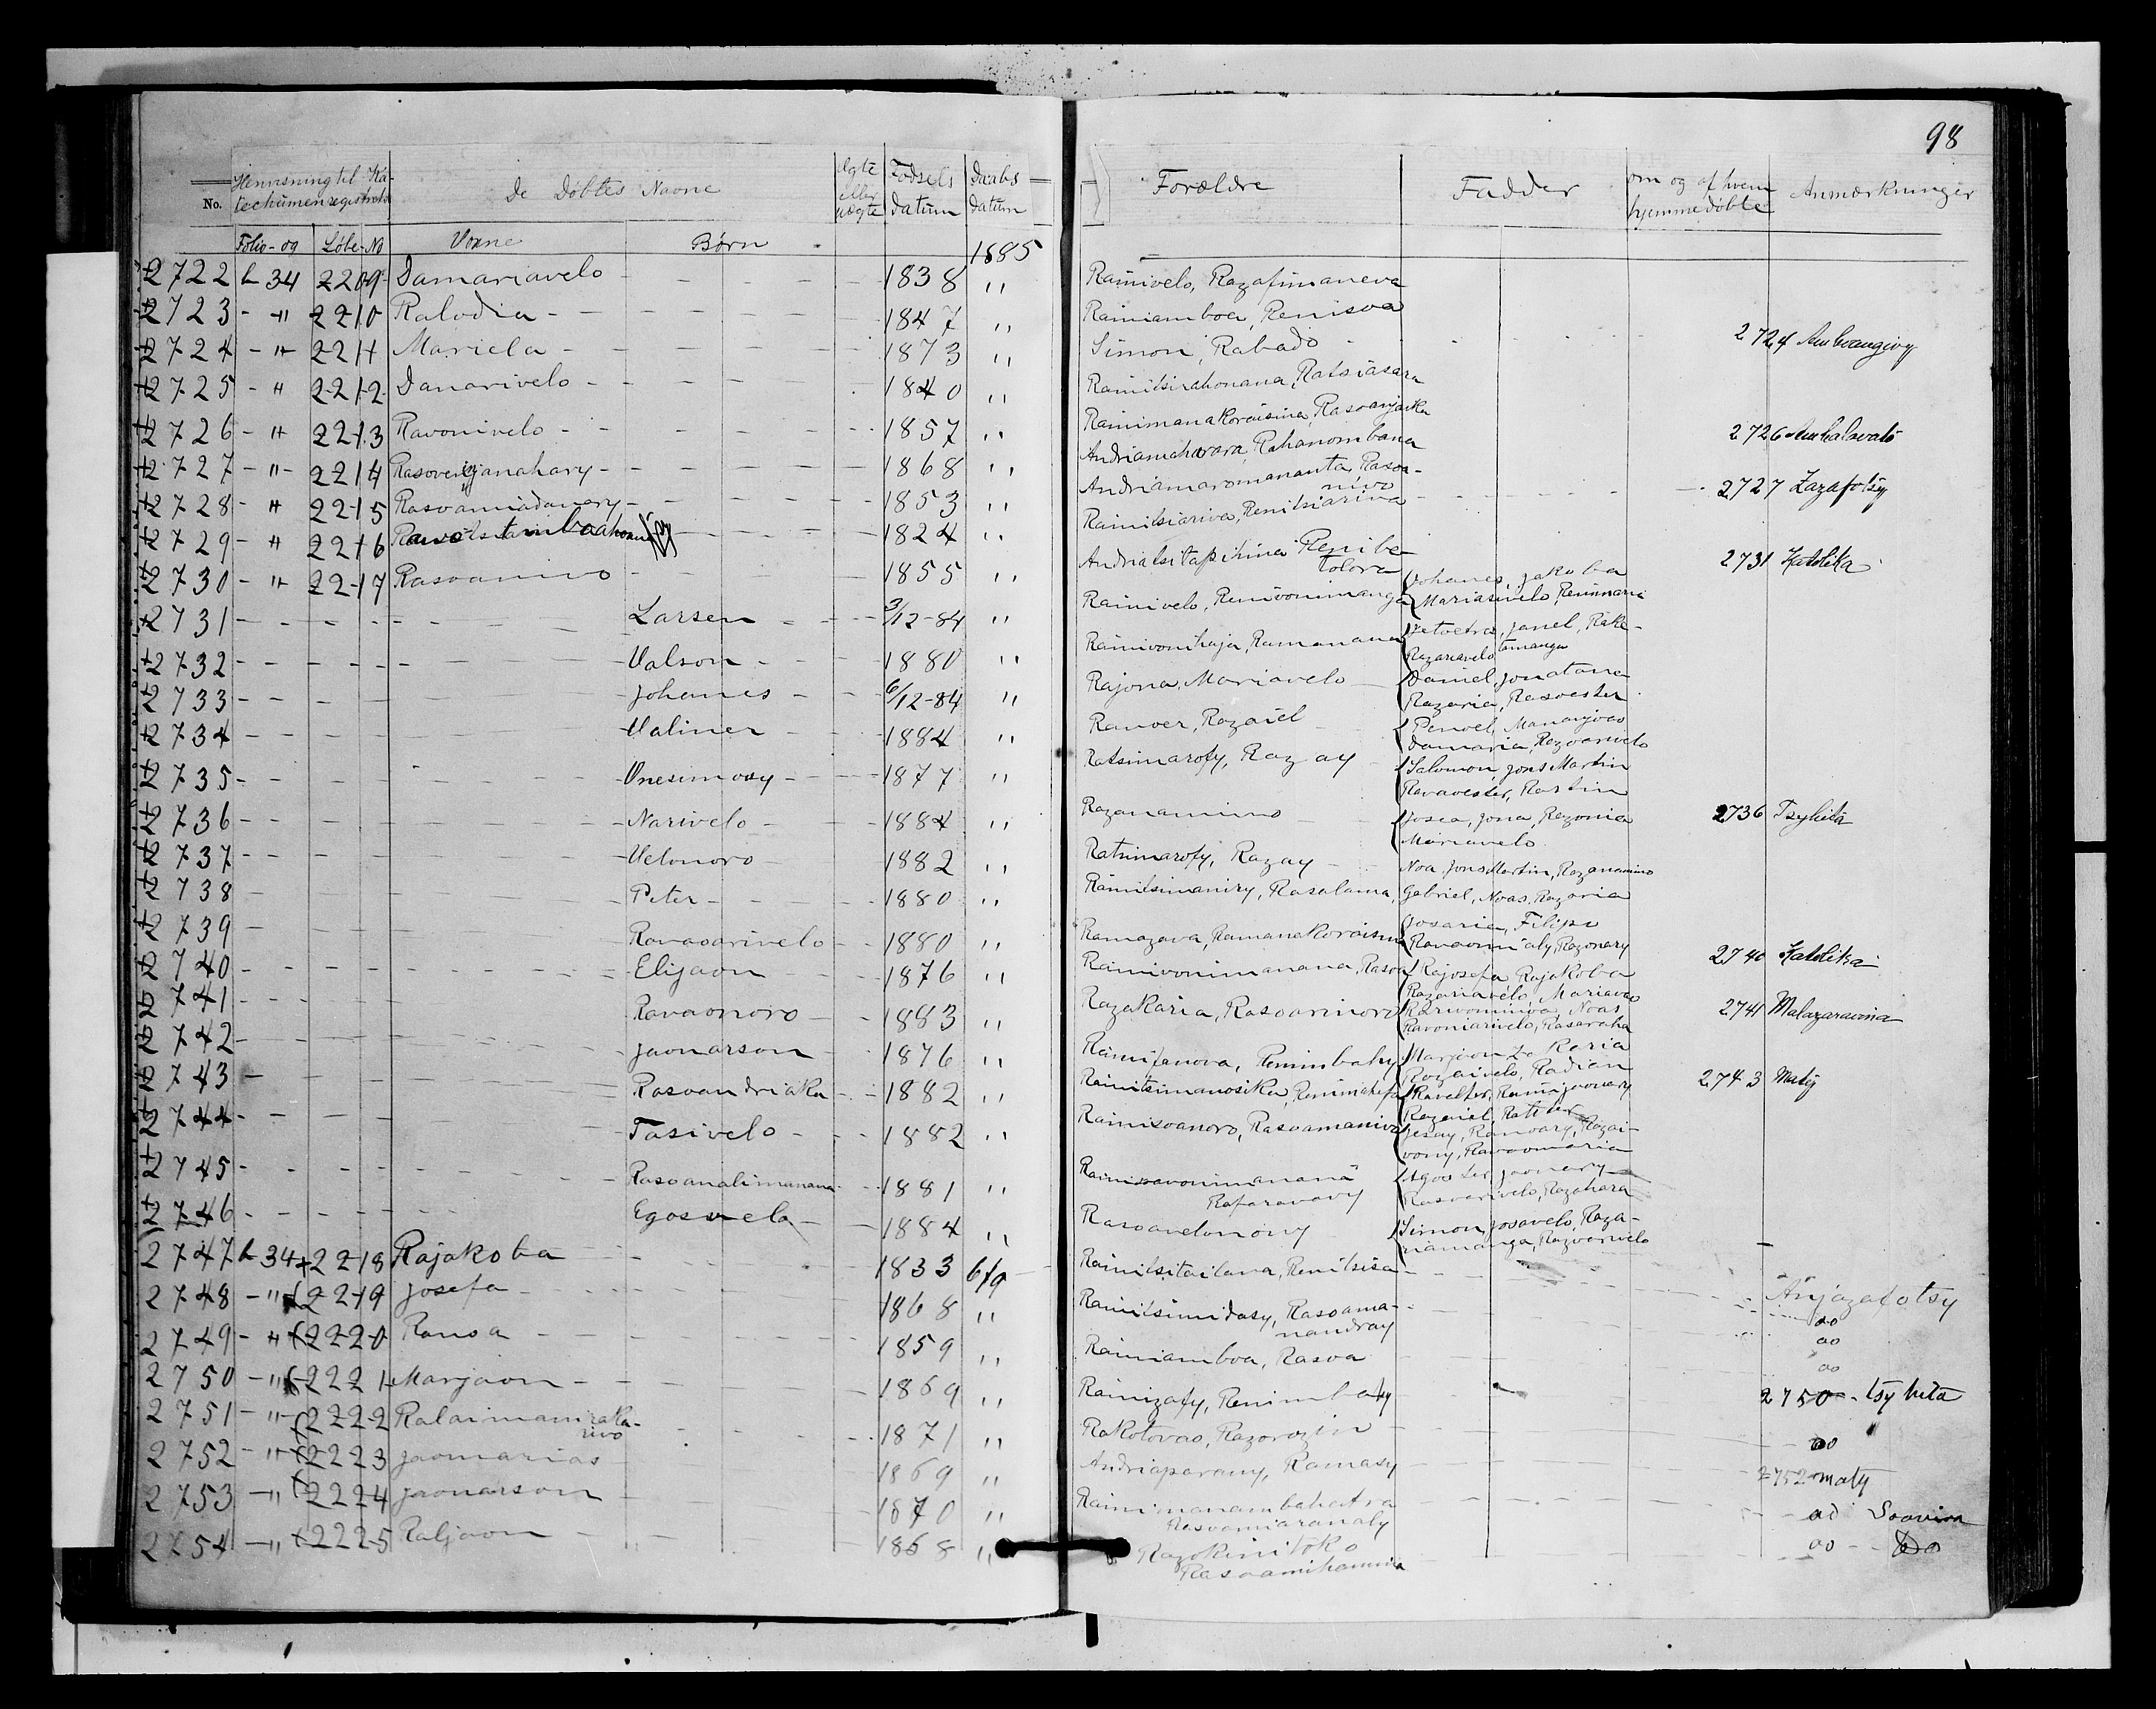 98
No. Henvisning til Katechumenregistret De Døbtes Navne Ægte eller uægte Fødsels datum Daabs datum Forældre Fadder om og af hvem hjemmedøbte Anmærkninger
Folio- og Løbe-No Voxne Børn 1885
2722 h 34 2209 Damariavelo 1838 " Rainivelo, Razafimaneva
2723 - " 2210 Ralodia 1847 " Rainiamboa, Renisoa
2724 - " 2211 Mariela 1873 " Simon, Rabado 2724
2725 - " 2212 Danarivelo 1840 " Rainitsirahonana, Ratsiasara
2726 - " 2213 Ravonivelo 1857 " Rainimanakoraisina, Rasoanjaka 2726 Ambalavato
2727 - " 2214 1868 " Andriamaharara, Rahanombana 2727 Zazafotsy
2728 - " 2215 Rasoamiadanary 1853 " Andriamaromananta, Rasoanivo
2729 - " 2216 1824 " Rainitsiariva, Renitsiariva
2730 - " 2217 Rasoanivo 1855 " Andriatsitapihina Renibetolora
2731 Larsen 3/12-84 " Rainivelo, Renivonimanga Johanes, Jakoba Mariasivelo, Renimaria 2731 Katolika
2732 Valson 1880 " Rainivonihaja, Ramanana Janel, Razariavelo
2733 Johanes 6/12-84 " Rajona, Mariavelo Daniel, Jonatana Razaria, Rasoester
2734 Valiner 1884 " Ranoer, Razaiel Penoel, Mananjoao Damaria, Razoarivelo
2735 Onesimosy 1877 " Ratsimarofy, Razay Salomon, Jons Martin Ravaoester, Rastin
2736 Narivelo 1884 " Razanamino Josea, Jona, Razonia Mariavelo 2736 Tsyhita
2737 Velonoro 1882 " Ratsimarofy, Razay Noa, Jons Martin, Razanamino
2738 Peter 1880 " Rainitsimaniry, Rasalama, Gabriel, Noas, Razaria
2739 Ravaoarivelo 1880 " Ramazava, Ramanakoraisina Josaria, Filipo Razonary
2740 Elijaon 1876 " Rainivonimanana, Rasoa Rajosefa, Rajakoba Razariavelo, Mariavao 2740 Katolika
2741 Ravaonoro 1883 " Razakaria, Rasoarinoro Noas Ravoniarivelo, Rasaraha 2741 Malazarasoina
2742 Jaonarson 1876 " Rainifanova, Renimbahy Marjaon Zakaria Razaivelo, Radian
2743 Rasoandriaka 1882 " Rainitsimanosika, Renimahefa Rainijaonary Razaiel, 2743 Maty
2744 Tasivelo 1882 " Rainisoanoro, Rasoamaniva Jesay, Ranoary, Razaivony, Ravaomaria
2745 Rasoanalimanana 1881 " Rafaravavy Jaonary Rasoarivelo, Razahara
2746 Egosvela 1884 " Rasoavelonony Simon, Josavelo, Razariamanga, Razoarivelo
2747 h 34 2218 Rajakoba 1833 6/9 Rainitsitailana, Renitsisa
2748 - " 2219 Josefa 1868 " Rainitsimidasy, Rasoamanandray Anjazafotsy
2749 - " 2220 Ranoa 1859 " Rainiamboa, Rasoa do
2750 - " 2221 Marjaon 1869 " Rainizafy, Renimbahy 2750 - tsy hita
2751 - " 2222 Ralaimaniraka-rivo 1871 " Rakotovao, Razorozin do
2752 - " 2223 Jaomarias 1869 " Andriaparany, Ramasy 2752 maty
2753 - " 2224 Jaonarson 1870 " Rainimanambahatra Rasoamiaranaly do Soavina
2754 - " 2225 Raljaon 1868 " Razokinitoko Rasoamihamina do - - Do